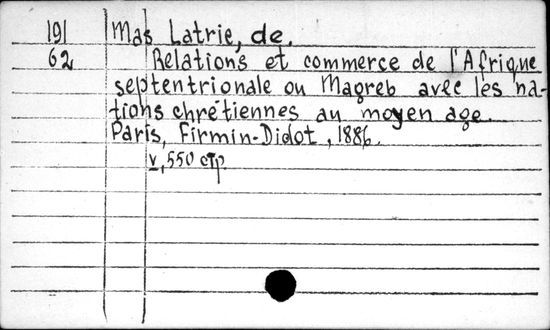 191 Mas Latrie, de.
62 Relations et commerce de l'Afrique
septentrionale ou Magreb avec les na-
tions chrétiennes au moyen age.
Paris, Firmin-Didot, 1886.
v, 550 стр.